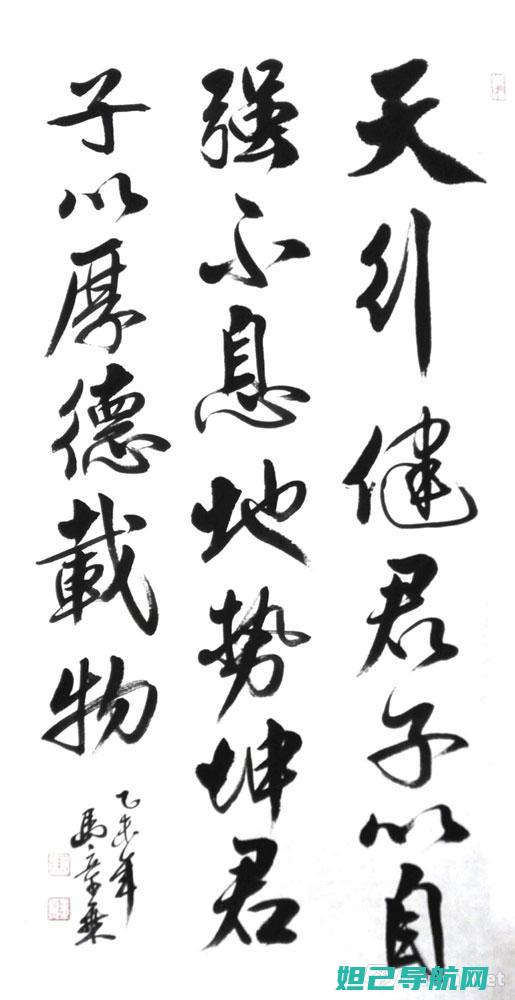 天行健君子以自
强不息地势坤君
子以厚德載物
乙未年
妲己导航网